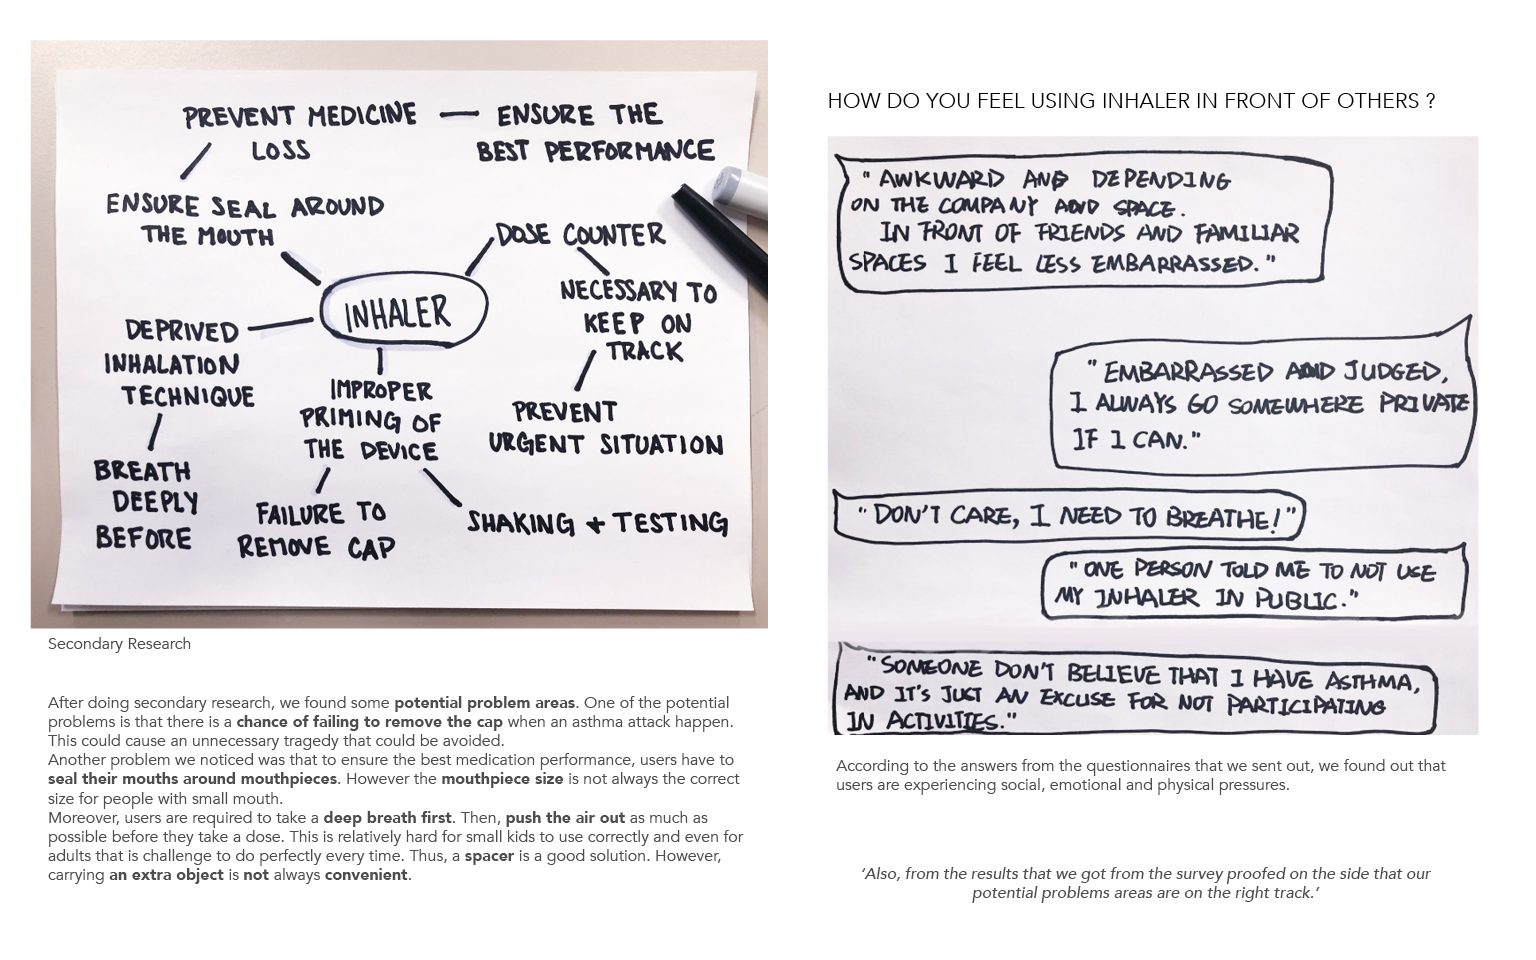 PREVENT MEDICINE — ENSURE THE
LOSS BEST PERFORMANCE
ENSURE SEAL AROUND
THE MOUTH
DOSE COUNTER
NECESSARY TO
KEEP ON
TRACK
PREVENT
URGENT SITUATION
INHALER
DEPRIVED
INHALATION
TECHNIQUE
BREATH
DEEPLY
BEFORE
IMPROPER
PRIMING OF
THE DEVICE
FAILURE TO
REMOVE CAP
SHAKING + TESTING
Secondary Research
After doing secondary research, we found some potential problem areas. One of the potential
problems is that there is a chance of failing to remove the cap when an asthma attack happen.
This could cause an unnecessary tragedy that could be avoided.
Another problem we noticed was that to ensure the best medication performance, users have to
seal their mouths around mouthpieces. However the mouthpiece size is not always the correct
size for people with small mouth.
Moreover, users are required to take a deep breath first. Then, push the air out as much as
possible before they take a dose. This is relatively hard for small kids to use correctly and even for
adults that is challenge to do perfectly every time. Thus, a spacer is a good solution. However,
carrying an extra object is not always convenient.
HOW DO YOU FEEL USING INHALER IN FRONT OF OTHERS ?
"AWKWARD AND DEPENDING
ON THE COMPANY AND SPACE.
IN FRONT OF FRIENDS AND FAMILIAR
SPACES I FEEL LESS EMBARRASSED."
"EMBARRASSED AND JUDGED,
I ALWAYS GO SOMEWHERE PRIVATE
IF I CAN."
"DON'T CARE, I NEED TO BREATHE!"
"ONE PERSON TOLD ME TO NOT USE
MY INHALER IN PUBLIC."
"SOMEONE DON'T BELIEVE THAT I HAVE ASTHMA,
AND IT'S JUST AN EXCUSE FOR NOT PARTICIPATING
IN ACTIVITIES."
According to the answers from the questionnaires that we sent out, we found out that
users are experiencing social, emotional and physical pressures.
‘Also, from the results that we got from the survey proofed on the side that our
potential problems areas are on the right track.’